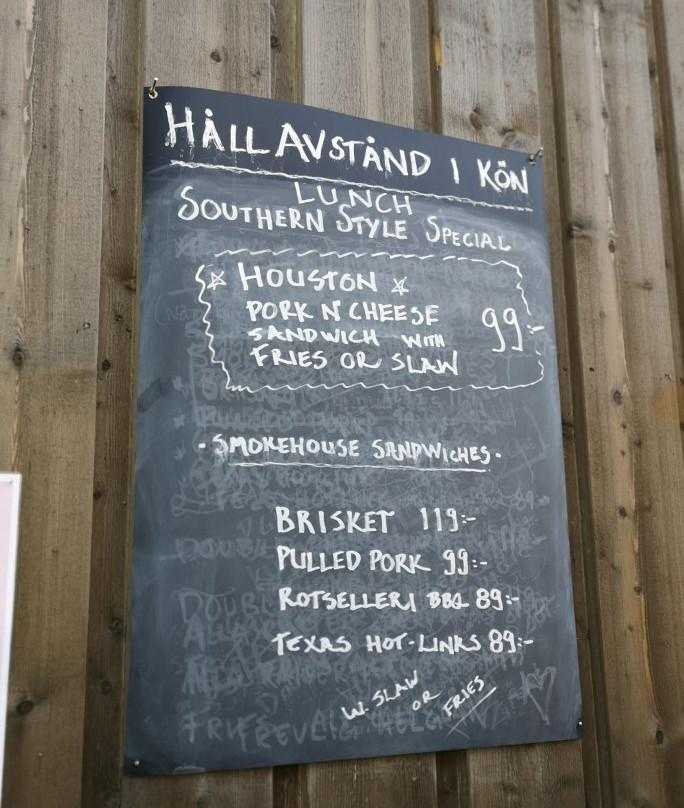 HÅLL AVSTÅND I KÖN
LUNCH
SOUTHERN STYLE SPECIAL
HOUSTON
PORK N' CHEESE
SANDWICH WITH
FRIES OR SLAW
99:-
· SMOKEHOUSE SANDWICHES ·
BRISKET 119:-
PULLED PORK 99:-
ROTSELLERI BBQ 89:-
TEXAS HOT-LINKS 89:-
W. SLAW OR FRIES